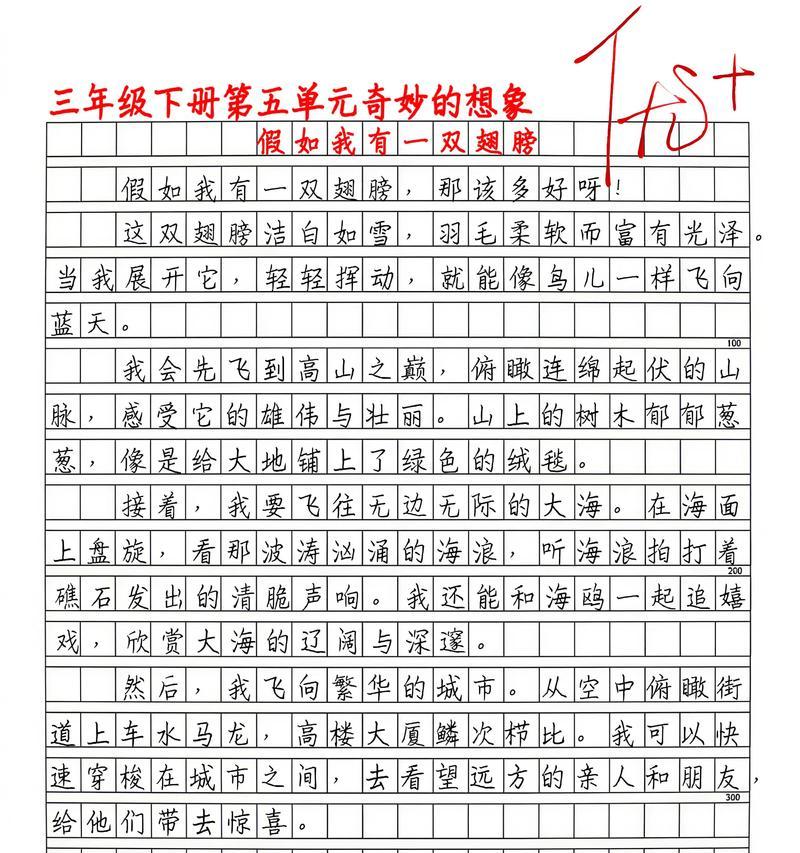 优+
三年级下册第五单元奇妙的想象
假如我有一双翅膀
假如我有一双翅膀，那该多好呀！
这双翅膀洁白如雪，羽毛柔软而富有光泽。
当我展开它，轻轻挥动，就能像鸟儿一样飞向
蓝天。
100
我会先飞到高山之巅，俯瞰连绵起伏的山
脉，感受它的雄伟与壮丽。山上的树木郁郁葱
葱，像是给大地铺上了绿色的绒毯。
接着，我要飞往无边无际的大海。在海面
上盘旋，看那波涛汹涌的海浪，听海浪拍打着
200
礁石发出的清脆声响。我还能和海鸥一起追嬉
戏，欣赏大海的辽阔与深邃。
然后，我飞向繁华的城市。从空中俯瞰街
道上车水马龙，高楼大厦鳞次栉比。我可以快
速穿梭在城市之间，去看望远方的亲人和朋友，
300
给他们带去惊喜。